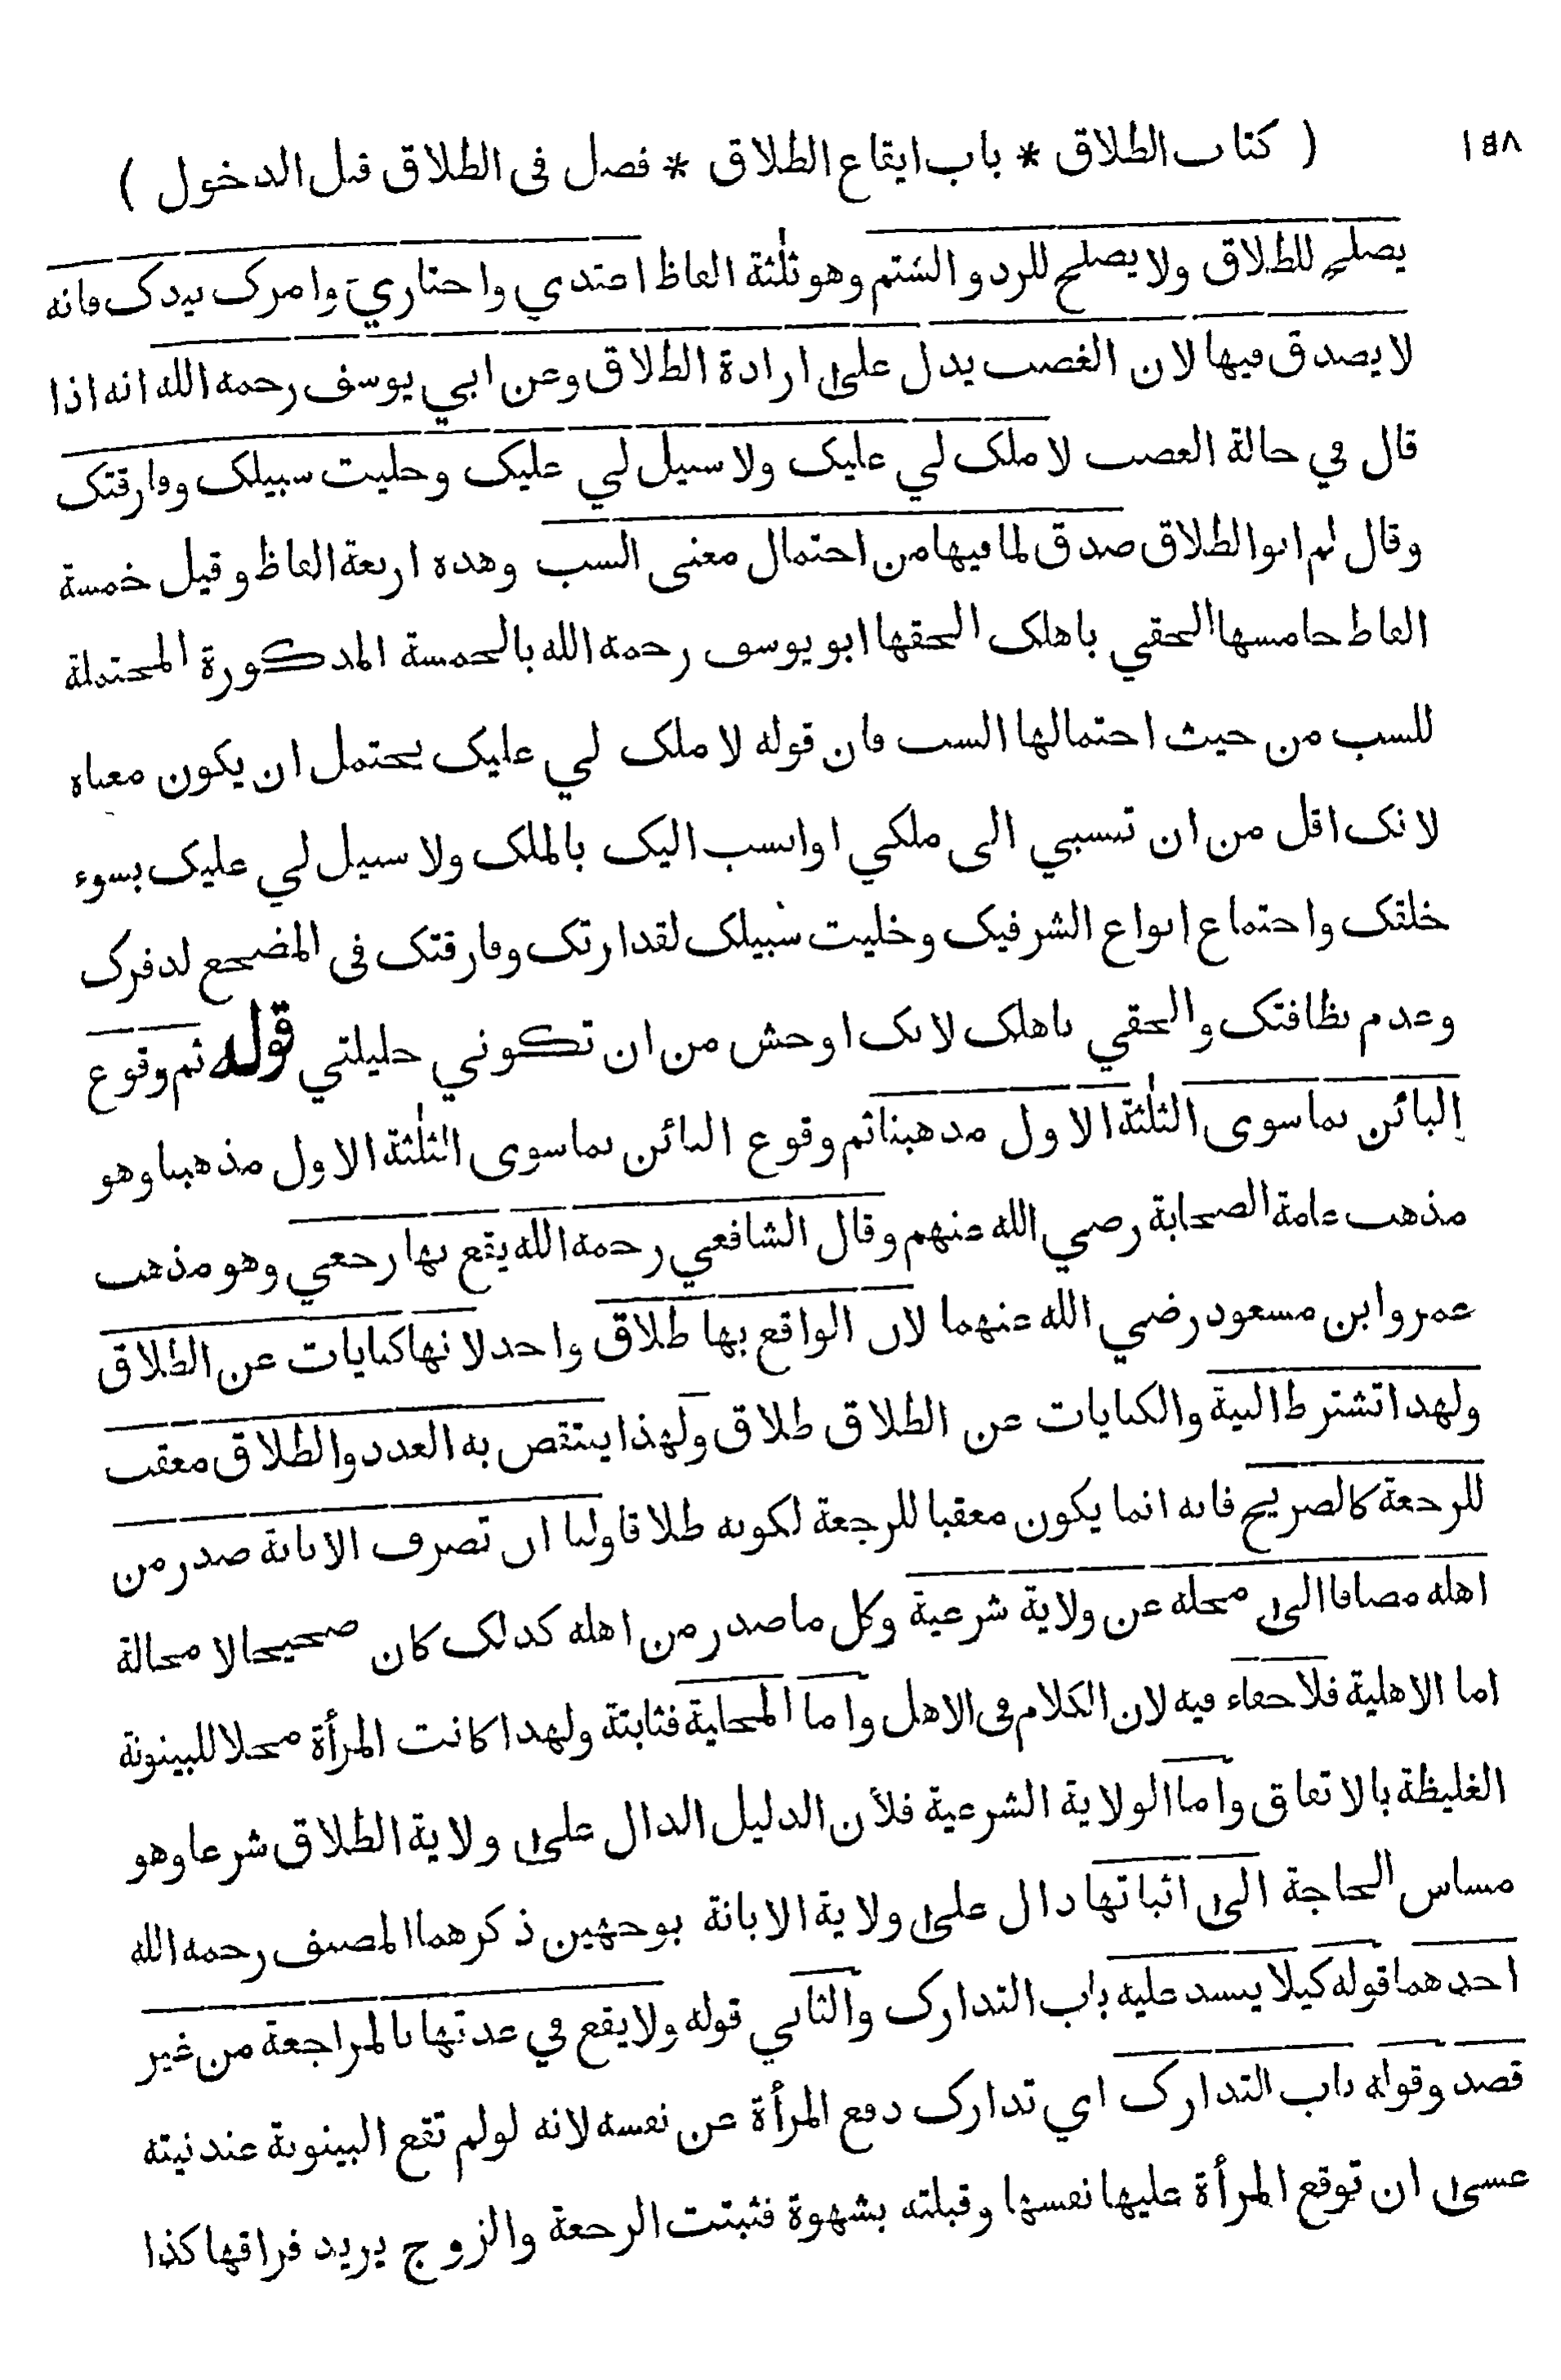 ( كتاب الطلاق * باب ايقاع الطلاق * فصل فى الطلاق قبل الدخول )
يصلح للطلاق ولا يصلح للرد والشتم وهو ثلثة الفاظ اعتدي واختاري وامرك بيدك فانه
لا يصدق فيها لان الغضب يدل على ارادة الطلاق وعن ابي يوسف رحمه الله انه اذا
قال في حالة الغضب لا ملك لي عليك ولا سبيل لي عليك وخليت سبيلك وفارقتك
وقال لم انو الطلاق صدق لما فيها من احتمال معنى السب وهذه اربعة الفاظ وقيل خمسة
الفاظ خامسها الحقي باهلك الحقها ابو يوسف رحمه الله بالخمسة المذكورة المحتملة
للسب من حيث احتمالها السب فان قوله لا ملك لي عليك يحتمل ان يكون معناه
لانك اقل من ان تنسبي الى ملكي او انسب اليك بالملك ولا سبيل لي عليك بسوء
خلقك واجتماع انواع الشر فيك وخليت سبيلك لقذارتك وفارقتك فى المضجع لدفرك
وعدم نظافتك والحقي باهلك لانك اوحش من ان تكوني حليلتي قوله ثم وقوع
البائن بما سوى الثلثة الاول مذهبنا ثم وقوع البائن بما سوى الثلثة الاول مذهبنا وهو
مذهب عامة الصحابة رضي الله عنهم وقال الشافعي رحمه الله يقع بها رجعي وهو مذهب
عمر وابن مسعود رضي الله عنهما لان الواقع بها طلاق واحد لانها كنايات عن الطلاق
ولهذا تشترط النية والكنايات عن الطلاق طلاق ولهذا ينتقص به العدد والطلاق معقب
للرجعة كالصريح فانه انما يكون معقبا للرجعة لكونه طلاقا ولنا ان تصرف الابانة صدر من
اهله مضافا الى محله عن ولاية شرعية وكل ما صدر من اهله كذلك كان صحيحا لا محالة
اما الاهلية فلا خفاء فيه لان الكلام فى الاهل واما المحلية فثابتة ولهذا كانت المرأة محلا للبينونة
الغليظة بالاتفاق واما الولاية الشرعية فلأن الدليل الدال على ولاية الطلاق شرعا وهو
مساس الحاجة الى اثباتها دال على ولاية الابانة بوجهين ذكرهما المصنف رحمه الله
احدهما قوله كيلا ينسد عليه باب التدارك والثاني قوله ولا يقع في عدتها بالمراجعة من غير
قصد وقوله باب التدارك اي تدارك دفع المرأة عن نفسه لانه لو لم تقع البينونة عند نيته
عسى ان توقع المرأة عليها نفسها وقبلته بشهوة فثبتت الرجعة والزوج يريد فراقها كذا